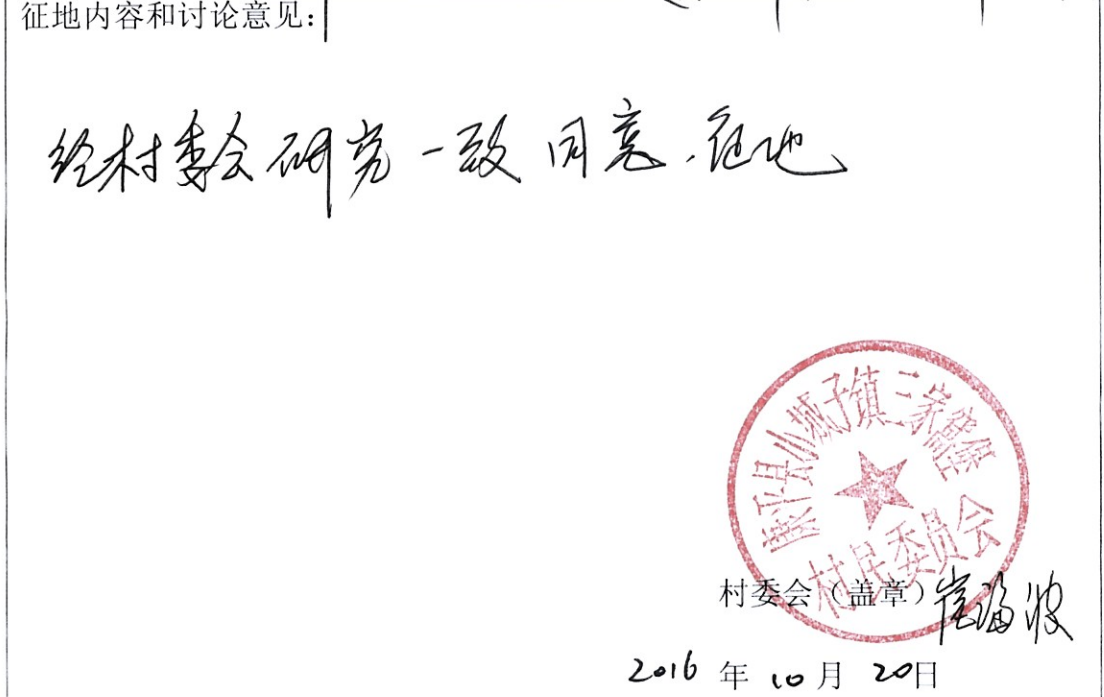 征地内容和讨论意见：
经村委会研究一致同意征地
康平县小城子镇三家窝堡
村民委员会
村委会（盖章）崔海波
2016 年 10 月 20日